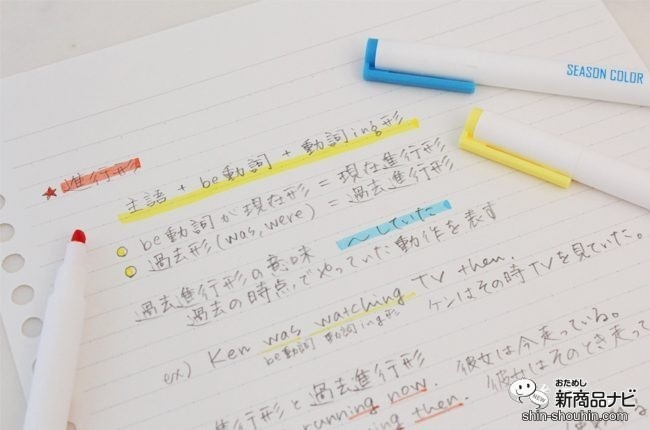 SEASON COLOR
★ 進行形
主語 + be動詞 + 動詞ing形
be動詞が現在形 = 現在進行形
過去形(was, were) = 過去進行形
過去進行形の意味 〜していた
過去の時点でやっていた動作を表す
ex) Ken was watching TV then. ケンはその時TVを見ていた。
be動詞 動詞ing形
進行形と過去進行形
running now. 彼女は今走っている。
then. 彼女はそのとき走って
おためし
新商品ナビ
NEW
shin-shouhin.com